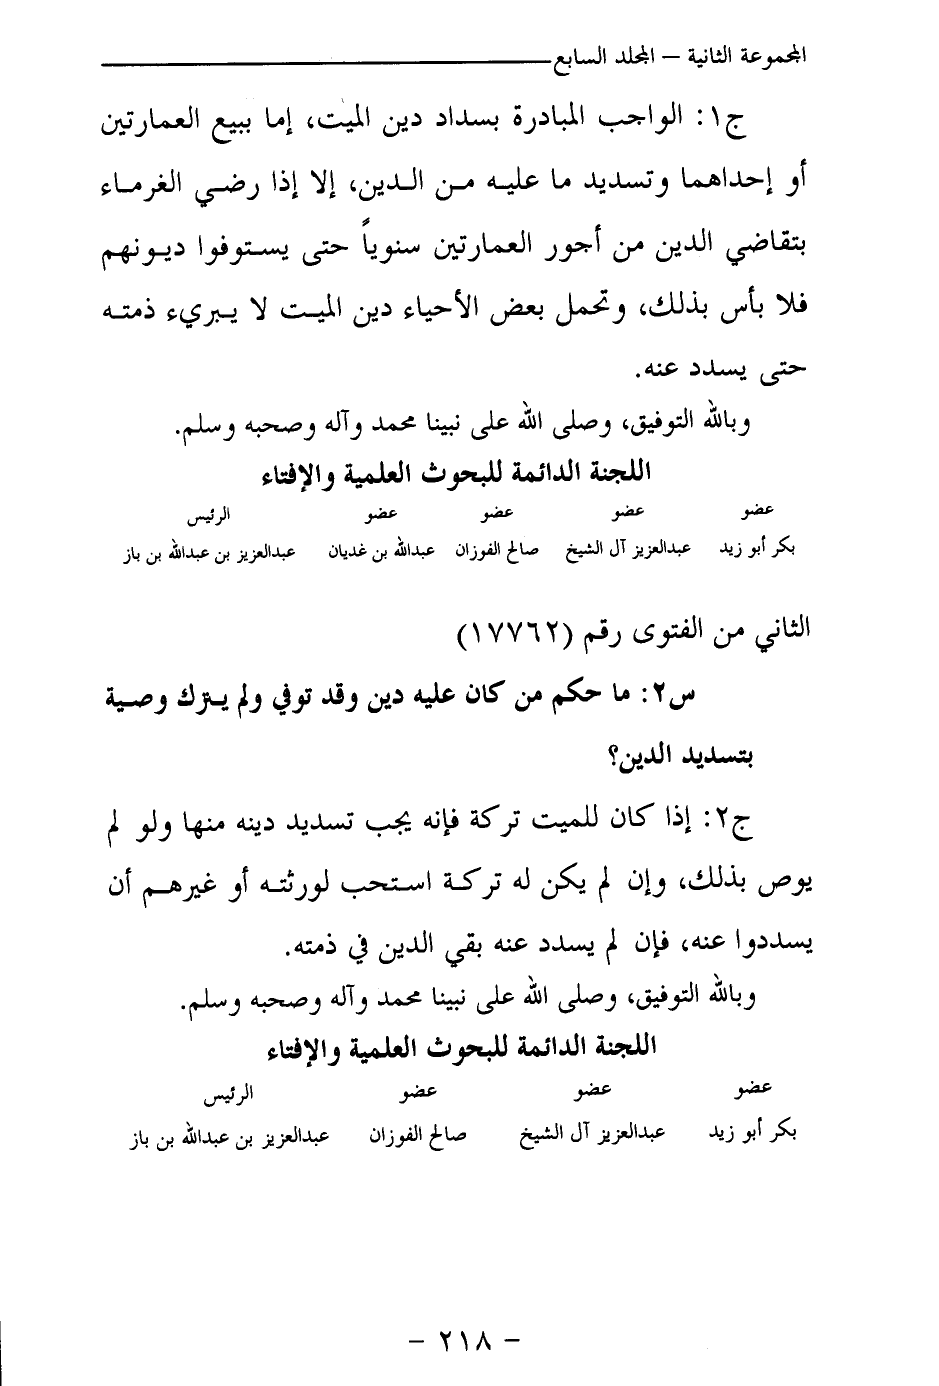 المجموعة الثانية – المجلد السابع
ج١: الواجب المبادرة بسداد دين الميت، إما ببيع العمارتين
أو إحداهما وتسديد ما عليه من الدين، إلا إذا رضي الغرماء
بتقاضي الدين من أجور العمارتين سنوياً حتى يستوفوا ديونهم
فلا بأس بذلك، وتحمل بعض الأحياء دين الميت لا يبريء ذمته
حتى يسدد عنه.
وبالله التوفيق، وصلى الله على نبينا محمد وآله وصحبه وسلم.
اللجنة الدائمة للبحوث العلمية والإفتاء
عضو عضو عضو عضو الرئيس
بكر أبو زيد عبدالعزيز آل الشيخ صالح الفوزان عبدالله بن غديان عبدالعزيز بن عبدالله بن باز
الثاني من الفتوى رقم (١٧٧٦٢)
س٢: ما حكم من كان عليه دين وقد توفي ولم يترك وصية
بتسديد الدين؟
ج٢: إذا كان للميت تركة فإنه يجب تسديد دينه منها ولو لم
يوص بذلك، وإن لم يكن له تركة استحب لورثته أو غيرهم أن
يسددوا عنه، فإن لم يسدد عنه بقي الدين في ذمته.
وبالله التوفيق، وصلى الله على نبينا محمد وآله وصحبه وسلم.
اللجنة الدائمة للبحوث العلمية والإفتاء
عضو عضو عضو الرئيس
بكر أبو زيد عبدالعزيز آل الشيخ صالح الفوزان عبدالعزيز بن عبدالله بن باز
– ٢١٨ –